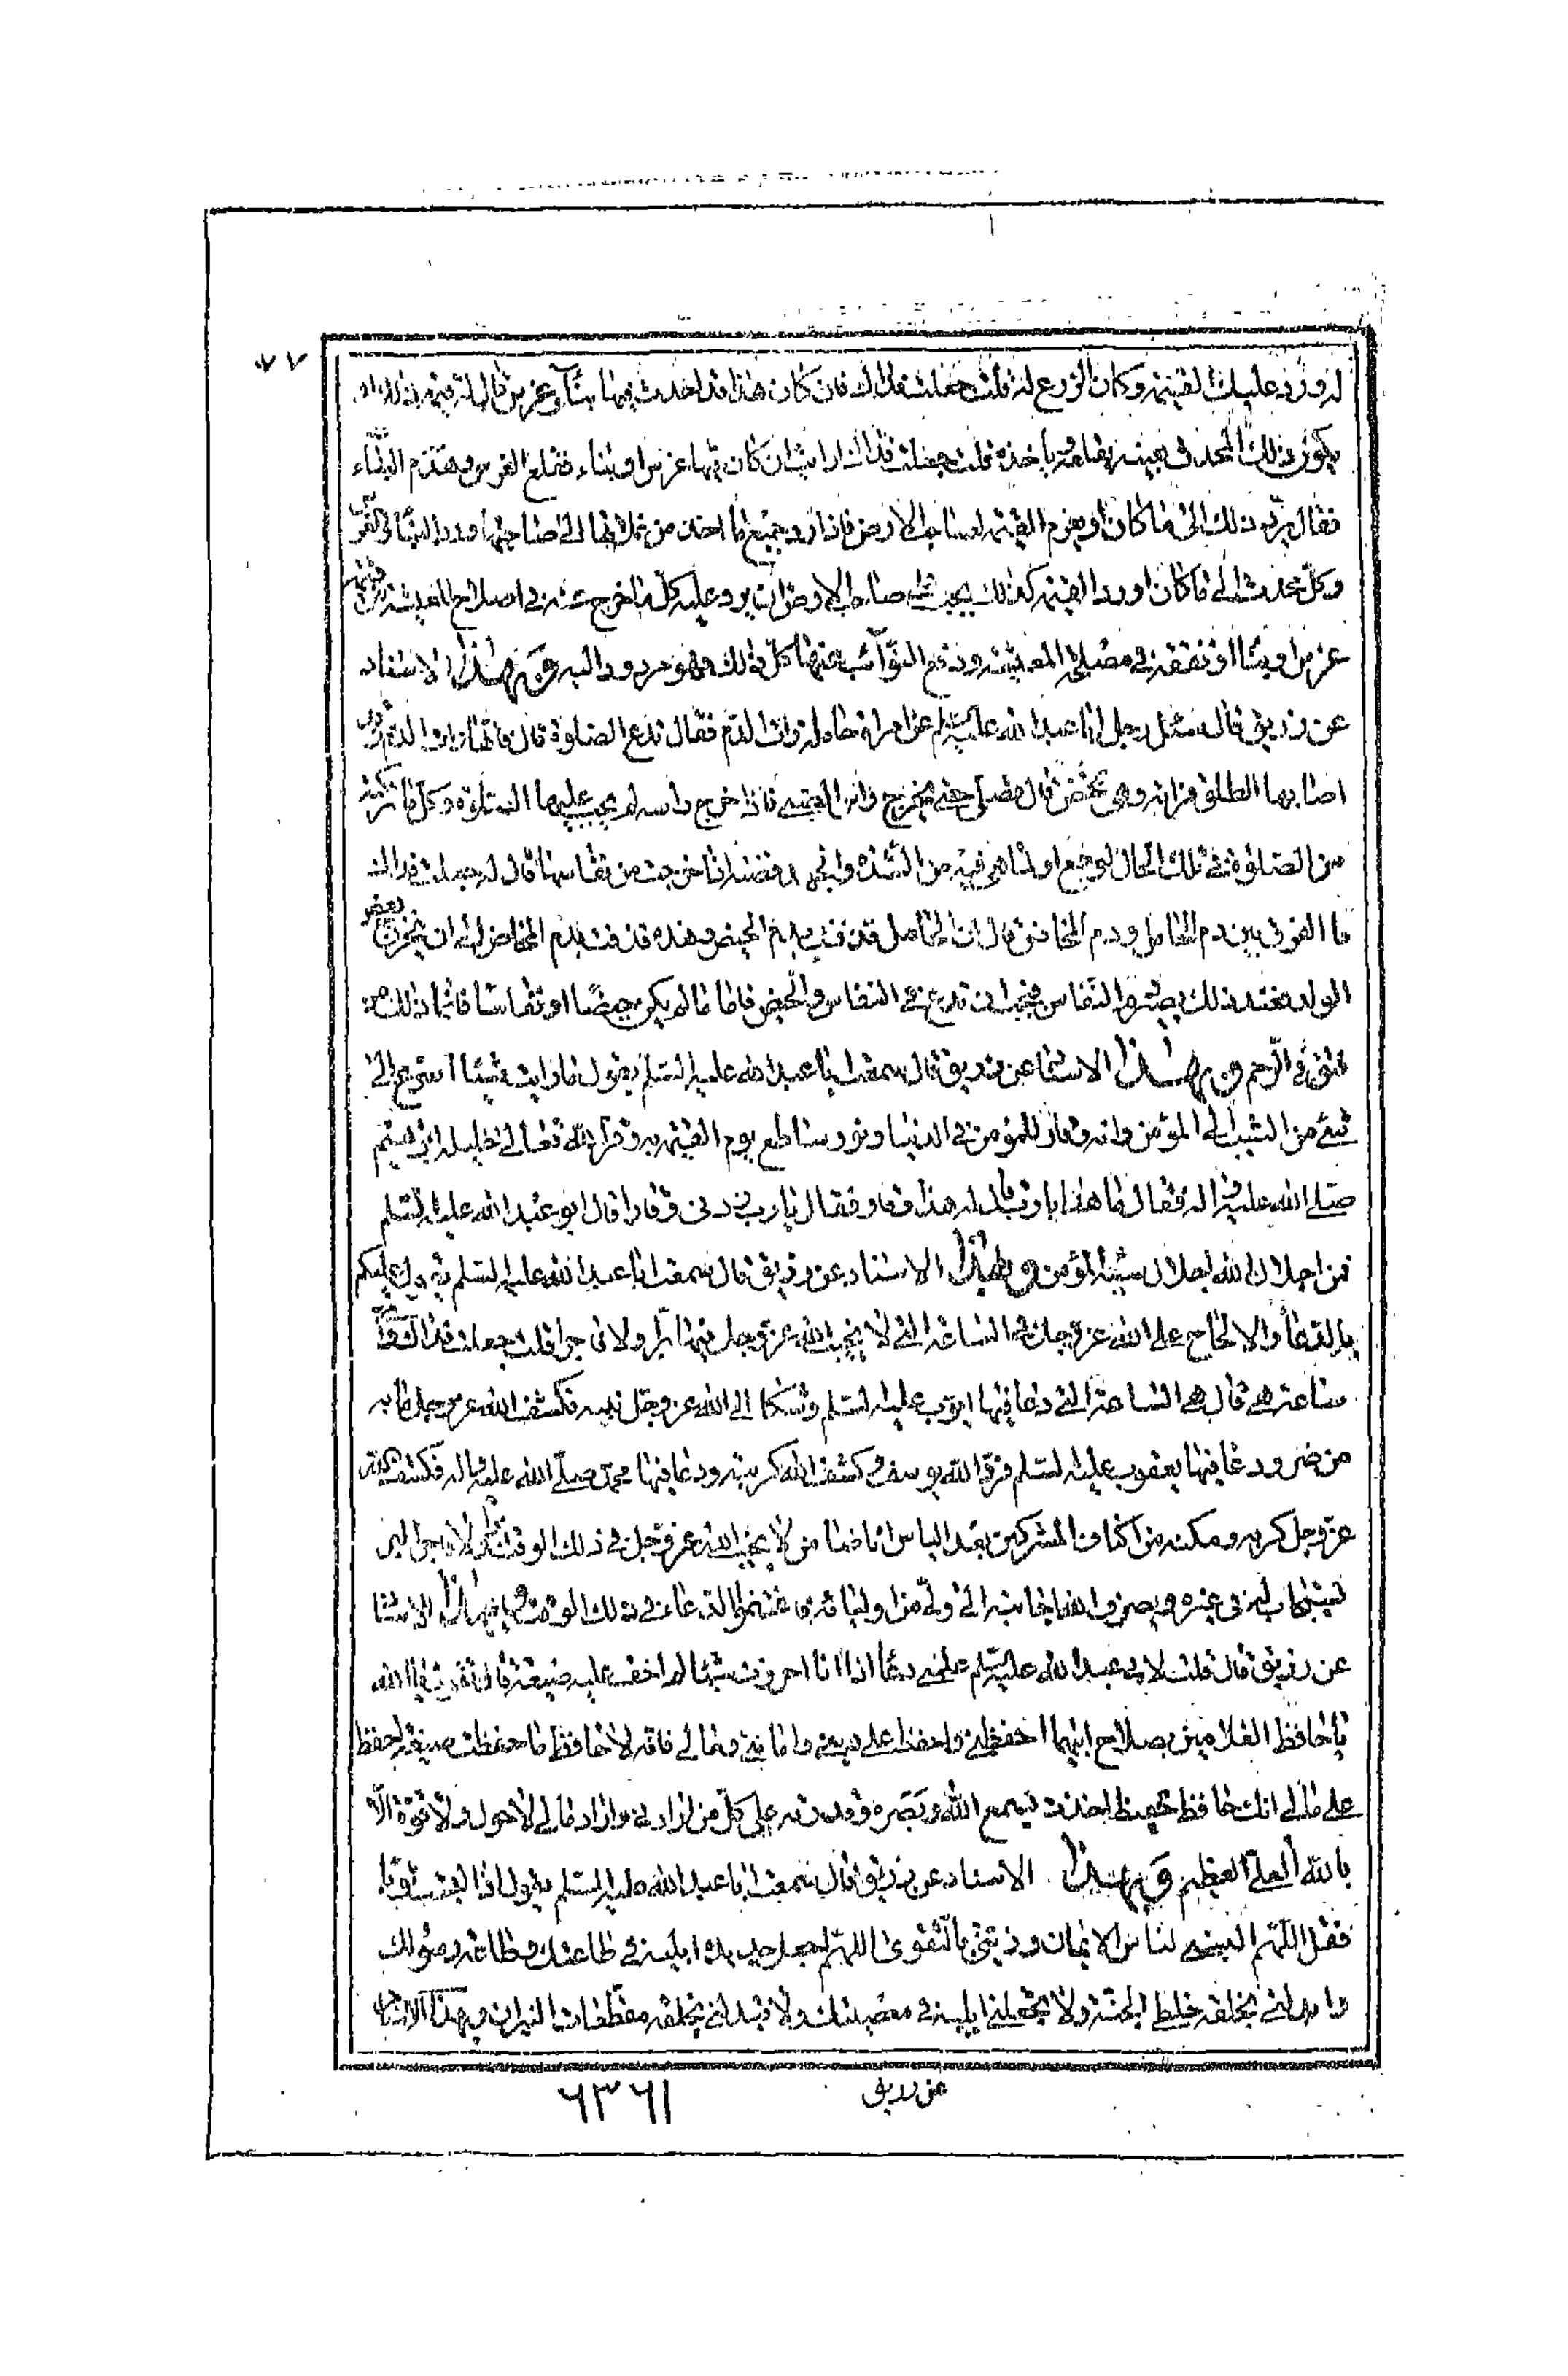 له ورد عليك القيمة وكان الزرع له قلت جعلت فداك فان كان هذا قد احدث فيها بناء وغرس قال له قيمة ذلك او
يكون ذلك المحدث بعينه يقلعه وياخذه قلت جعلت فداك ارايت ان كان فيها غرس او بناء فقلع الغرس وهدم البناء
فقال يرد ذلك الى ما كان او يغرم القيمة لصاحب الارض فاذا رد جميع ما اخذ من غلاتها الى صاحبها ورد البناء والغرس
وكل محدث الى ما كان او رد القيمة كذلك يجب على صاحب الارض ان يرد عليه كل ما خرج عنه في اصلاح المعيشة من قيمة
غرس او بناء او نفقة في مصلحة المعيشة ودفع النوائب عنها كل ذلك فهو مردود اليه وبهذا الاسناد
عن زريق قال سئل رجل ابا عبد الله عليه السلم عن امراة حامل رات الدم فقال تدع الصلوة قال فانها رات الدم وقد
اصابها الطلق فراته وهي تمخض قال تصلي حتى يخرج راس الصبي فاذا خرج راسه لم يجب عليها الصلوة وكل ما تركته
من الصلوة في تلك الحال لوجع او لما هي فيه من الشدة والجهد قضته اذا خرجت من نفاسها قال له جعلت فداك
ما الفرق بين دم الحامل ودم المخاض قال ان الحامل قذفت بدم الحيض وهذه قذفت بدم المخاض الى ان يخرج بعض
الولد فعند ذلك يصير دم النفاس فيجب ان تدع في النفاس والحيض فاما ما لم يكن حيضا او نفاسا فانما ذلك من
فتق في الرحم وبهذا الاسناد عن زريق قال سمعت ابا عبد الله عليه السلم يقول ما رايت شيئا اسرع الى
شيء من الشيب الى المؤمن وانه وقار للمؤمن في الدنيا ونور ساطع يوم القيمة به وقر الله تعالى خليله ابرهيم
صلى الله عليه واله فقال ما هذا يا رب قال له هذا وقار فقال يا رب زدني وقارا قال ابو عبد الله عليه السلم
فمن اجلال الله اجلال شيبة المؤمن وبهذا الاسناد عن زريق قال سمعت ابا عبد الله عليه السلم يقول عليكم
بالدعاء والالحاح على الله عز وجل في الساعة التي لا يخيب الله عز وجل فيها برا ولا فاجرا قلت جعلت فداك واية
ساعة هي قال هي الساعة التي دعا فيها ايوب عليه السلم وشكا الى الله عز وجل بليته فكشف الله عز وجل ما به
من ضر ودعا فيها يعقوب عليه السلم فرد الله يوسف وكشف الله كربته ودعا فيها محمد صلى الله عليه واله فكشف الله
عز وجل كربه ومكنه من اكتاف المشركين بعد الياس انا ضامن لا يخيب الله عز وجل في ذلك الوقت برا ولا فاجرا البر
يستجاب له في غيره ويصرف الله اجابته الى ولي من اوليائه فاغتنموا الدعاء في ذلك الوقت وبهذا الاسناد
عن زريق قال قلت لابي عبد الله عليه السلم علمني دعاء اذا انا احرزت شيئا لم اخف عليه ضيعة قال تقول يا الله
يا حافظ الغلامين بصلاح ابيهما احفظني واحفظ علي ديني وامانتي ومالي فانه لا حافظ ما حفظت ضيعة احفظ
علي مالي انك حافظ حفيظ اخذت بسمع الله وبصره وقدرته على كل من ارادني واراد مالي لا حول ولا قوة الا
بالله العلي العظيم وبهذا الاسناد عن زريق قال سمعت ابا عبد الله عليه السلم يقول اذا لبست ثوبا
فقل اللهم البسني لباس الايمان وزيني بالتقوى اللهم اجعل جديده ابليه في طاعتك وطاعة رسولك
وابدلني بخلقه حلل الجنة ولا تجعلني ابليه في معصيتك ولا تبدلني بخلقه مقطعات النيران وبهذا الاسناد
عن زريق